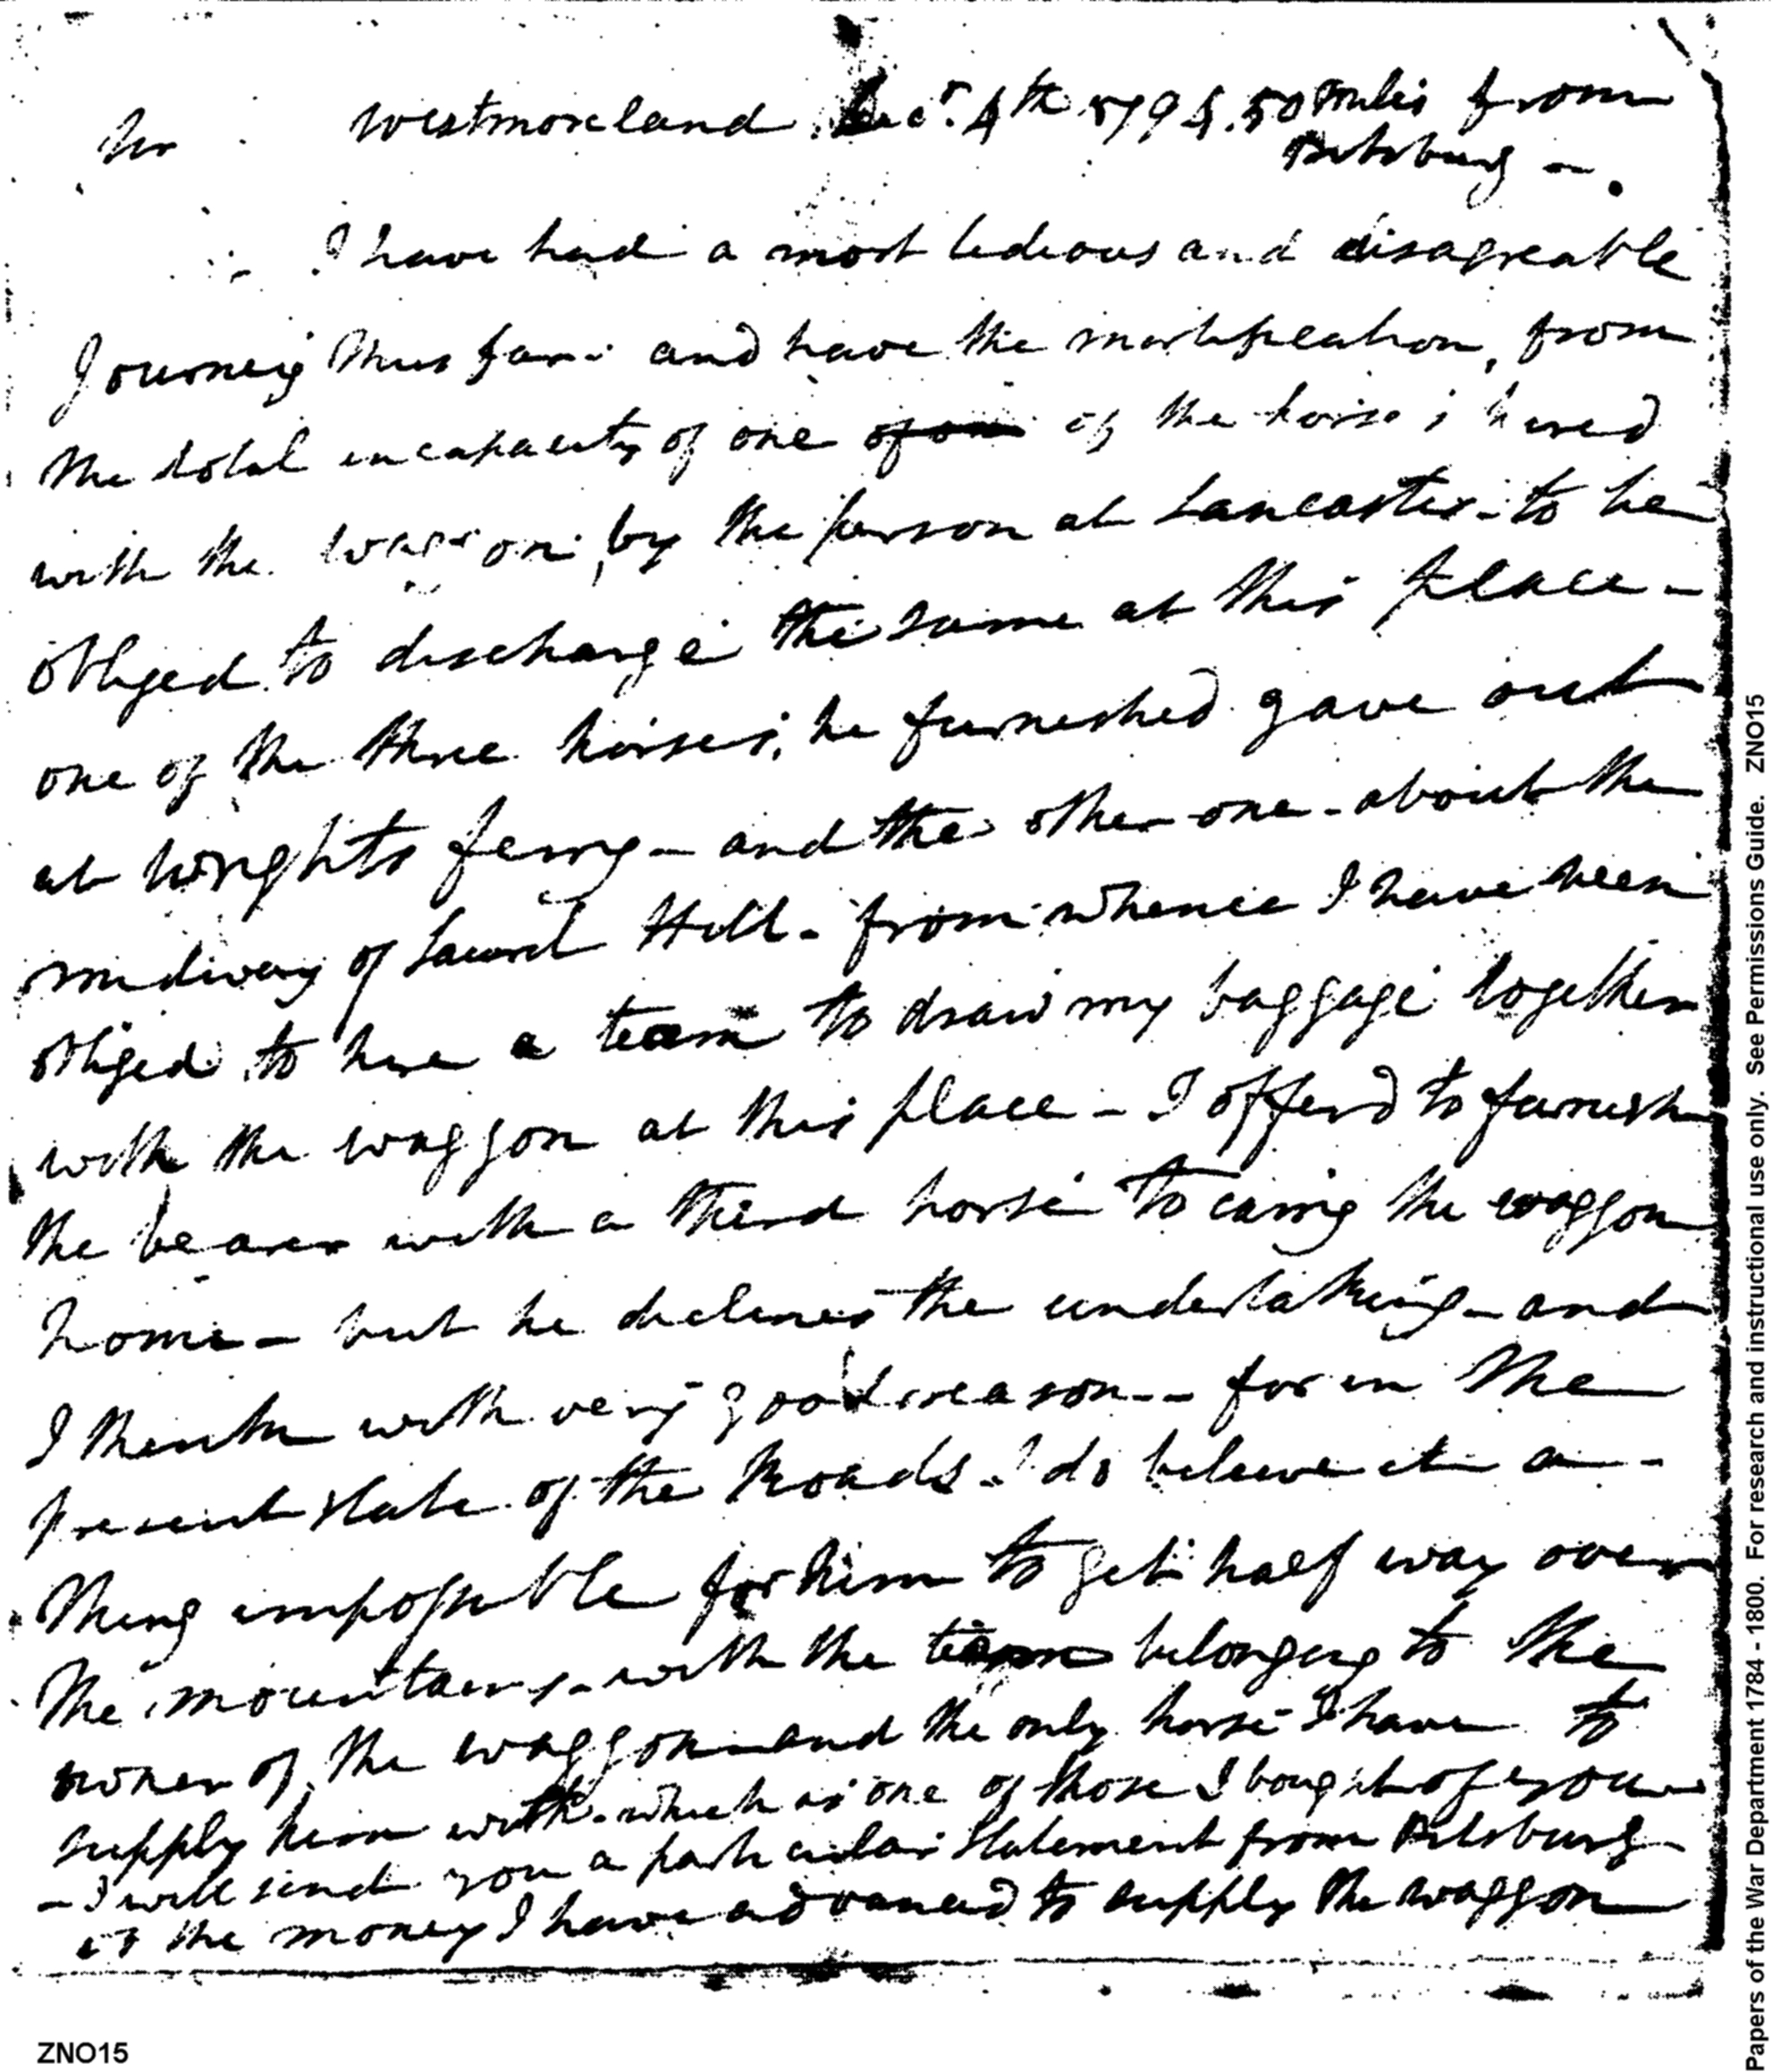 Sir Westmoreland Decr. 4th 1794. 50 Miles from
Pitsburg -.
I have had a most tedious and disagreable
Journey thus far - and have the mortification, from
the total incapacity of one of the horses hired
with the waggon, by the person at Lancaster - to be
obliged to discharge the same at this place -
one of the three horses, he furnished gave out
at Wrights ferry - and the other one - about the
midway of Laurel Hill - from whence I have been
obliged to hire a team to draw my baggage together
with the waggon at this place - I offerd to furnish
the bearer with a third horse to carry the waggon
home - but he declines the undertaking - and
I think with very good reason - for in the
present state of the Roads - I do believe it a -
thing impossible for him to get half way over
the mountains - with the team belonging to the
owner of the waggon and the only horse I have to
supply him with - which is one of those I bought of you
- I will send you a particular statement from Pitsburg
of the money I have advanced to supply the waggon
Papers of the War Department 1784 - 1800. For research and instructional use only. See Permissions Guide. ZNO15
ZNO15